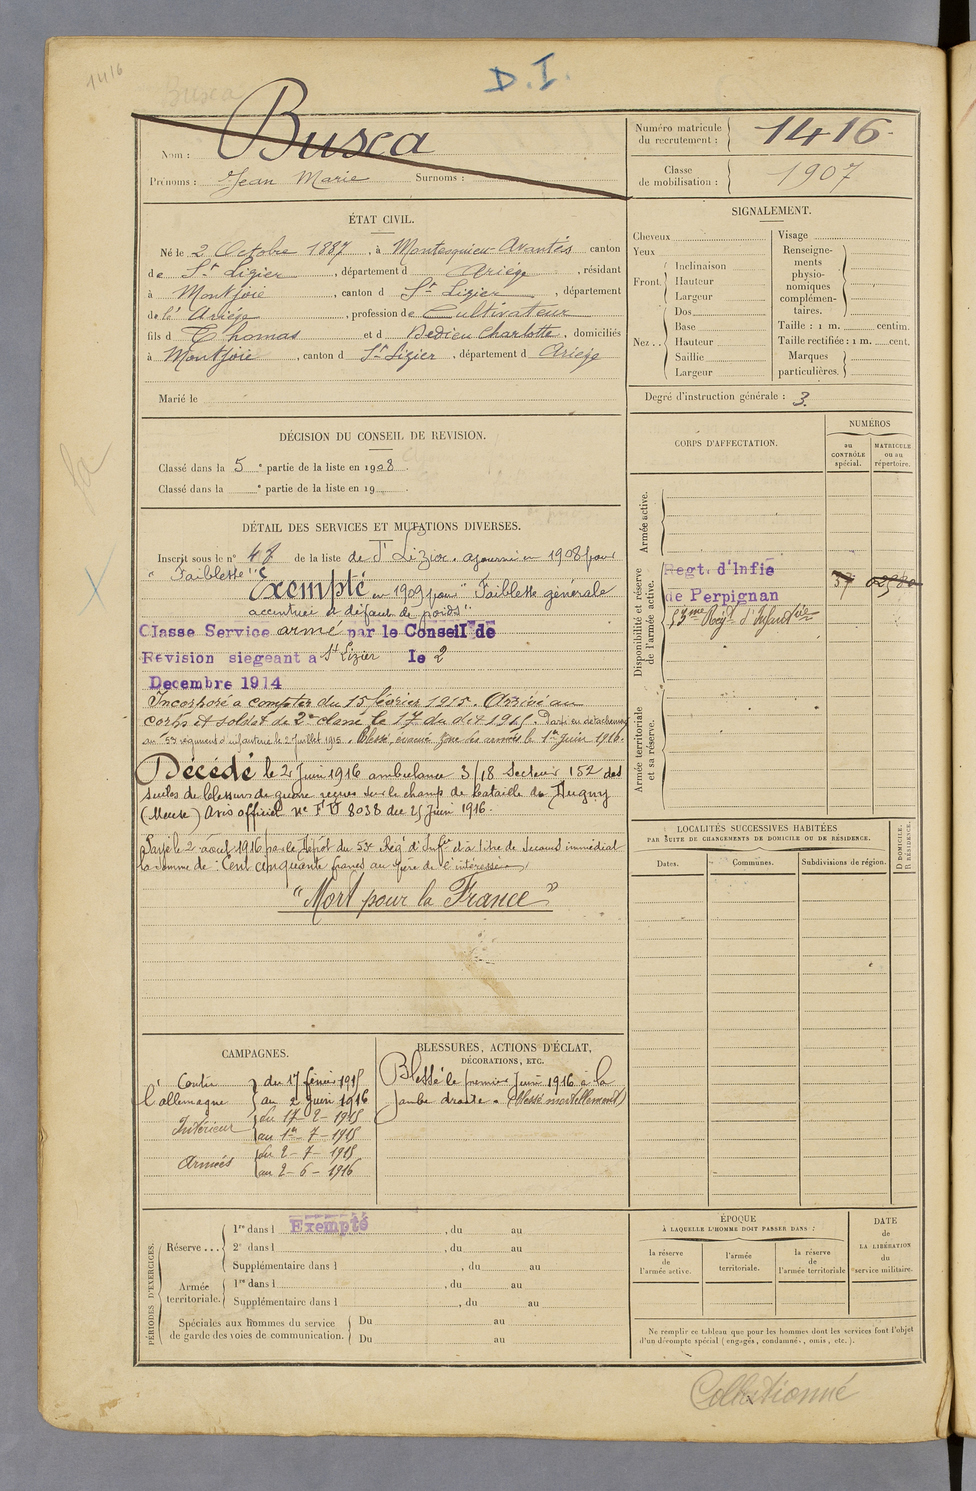 1416
Busca
D. I.
Nom : Busca
Prénoms : Jean Marie Surnoms :
Numéro matricule du recrutement : 1416
Classe de mobilisation : 1907
ÉTAT CIVIL.
Né le 2 Octobre 1887, à Montesquieu-Avantès canton
de St Lizier, département d Ariège, résidant
à Montjoie, canton d St Lizier, département
de l' Ariège, profession de Cultivateur
fils d Thomas et d Dedieu Charlotte, domiciliés
à Montjoie, canton d St Lizier, département d Ariège
Marié le
SIGNALEMENT.
Cheveux
Yeux
Front. Inclinaison
Hauteur
Largeur
Nez.. Dos
Base
Hauteur
Saillie
Largeur
Visage
Renseigne-
ments
physio-
nomiques
complémen-
taires.
Taille : 1 m. centim.
Taille rectifiée : 1 m. cent.
Marques
particulières.
Degré d'instruction générale : 3.
DÉCISION DU CONSEIL DE REVISION.
Classé dans la 5 e partie de la liste en 1908.
Classé dans la e partie de la liste en 19 .
DÉTAIL DES SERVICES ET MUTATIONS DIVERSES.
Inscrit sous le n° 48 de la liste de St Lizier. ajourné en 1908 pour
"Faiblesse"
Exempté en 1909 pour "Faiblesse générale
accentuée et défaut de poids"
Classe Service armé par le Conseil de
Révision siegeant a St Lizier le 2
Decembre 1914
Incorporé à compter du 15 février 1915. Arrivé au
corps et soldat de 2e classe le 17 du dit 1915. Parti en détachement
au 53e régiment d'infanterie le 2 juillet 1915. Blessé, évacué zone des armées le 1er juin 1916.
Décédé le 2 Juin 1916 ambulance 3/18 Secteur 152 des
suites de blessures de guerre reçues sur le champ de bataille de Dugny
(Meuse) Avis officiel N° F D 8038 du 25 Juin 1916.
Payé le 2 août 1916 par le Dépôt du 53e Rég d'Infie à titre de Secours immédiat
la somme de : Cent cinquante francs au père de l'intéressé
"Mort pour la France"
CORPS D'AFFECTATION.
NUMÉROS
au CONTRÔLE spécial.
MATRICULE ou au répertoire.
Armée active.
Disponibilité et réserve de l'armée active.
Regt. d'Infie
de Perpignan
53me Régt d'Infanterie
Armée territoriale et sa réserve.
LOCALITÉS SUCCESSIVES HABITÉES
PAR SUITE DE CHANGEMENTS DE DOMICILE OU DE RÉSIDENCE.
Dates.
Communes.
Subdivisions de région.
D DOMICILE.
R RÉSIDENCE.
CAMPAGNES.
Contre l'allemagne du 17 février 1915
au 2 juin 1916
Intérieur du 17-2-1915
au 1er-7-1915
Armées du 2-7-1915
au 2-6-1916
BLESSURES, ACTIONS D'ÉCLAT,
DÉCORATIONS, ETC.
Blessé le premier Juin 1916 à la
jambe droite. (blessé mortellement)
PÉRIODES D'EXERCICES.
Réserve... 1re dans l Exempté, du au
2e dans l, du au
Supplémentaire dans l, du au
Armée territoriale. 1re dans l, du au
Supplémentaire dans l, du au
Spéciales aux hommes du service
de garde des voies de communication.
Du au
Du au
ÉPOQUE
À LAQUELLE L'HOMME DOIT PASSER DANS :
la réserve de l'armée active.
l'armée territoriale.
la réserve de l'armée territoriale
DATE de LA LIBÉRATION du service militaire.
Ne remplir ce tableau que pour les hommes dont les services font l'objet
d'un décompte spécial (engagés, condamnés, omis, etc.).
Collationné